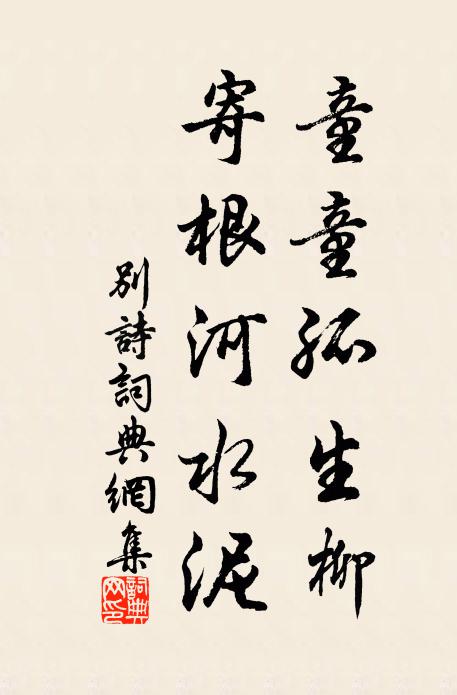 童童孤生柳
寄根河水泥
別詩詞典網集
詞典网印